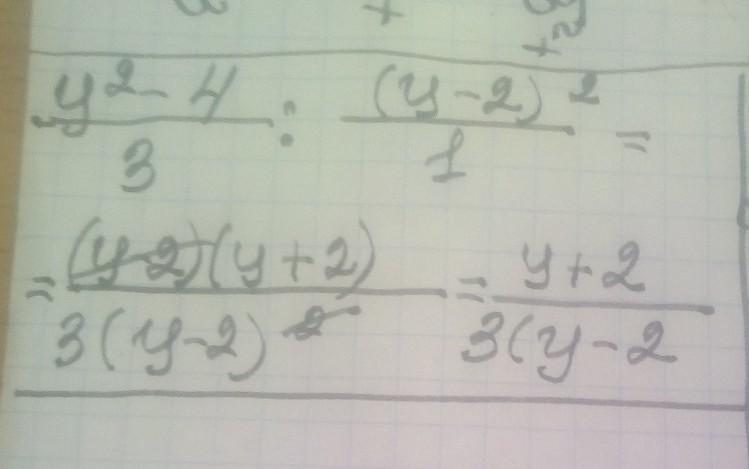 y² - 4 / 3 : (y - 2)² / 1 =
= (y-2)(y + 2) / 3(y-2)² = y + 2 / 3(y - 2